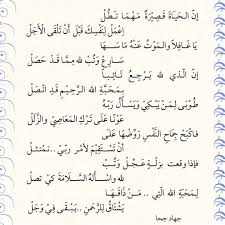 إنّ الحيَاةَ قَصِيْرَةٌ مَهْمَا تَطُلْ
إعْمَلْ لِنَفْسِكَ قَبْلَ أنْ تَلْقَى الأجَلْ
يَا غَافِلاً والمَوْتُ عَنْهُ مَا سَهَا
سَارِعْ وَتُبْ لله مِمَّا قَدْ حَصَلْ
إنّ الّذي لله يَرْجِعُ تَائِباً
بِمَحَبَّةِ اللهِ الرَّحِيْمِ قَدِ اتّصَلْ
طُوْبَى لِمَنْ يَبْكِيْ وَيَسْأَلُ رَبَّهُ
عَوْنَاً عَلَى تَرْكِ المَعَاصِيْ والزَّلَلْ
فاكبَحْ جِمَاحَ النَّفْسِ رَوِّضْهَا عَلَى
أنْ تَسْتَقِيْمَ لأمْرِ رَبِّيْ..تمتثلْ
فإذا وقعت بزلّة عجّلْ وتُبْ
لله واسألهُ السَّلامَةَ كيْ تصلْ
لِمَحَبّةِ الله التي .. مَنْ ذَاقَهَا
يَشْتَاقُ لِلرَّحْمَنِ ..يَبْقَى فِيْ وَجَلْ
جهاد جحا